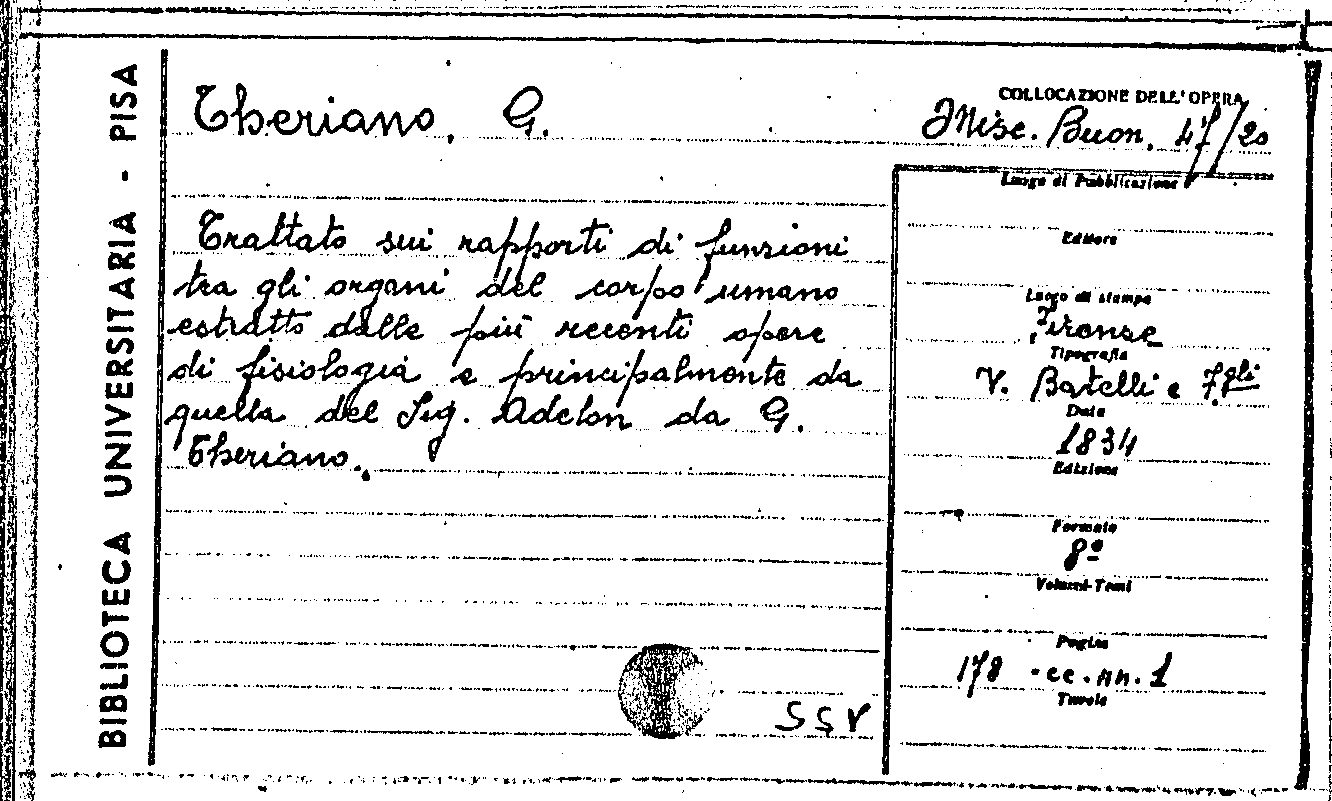 BIBLIOTECA UNIVERSITARIA - PISA
Theriano, G.
COLLOCAZIONE DELL'OPERA
Misc. Buon. 47/20
Trattato sui rapporti di funzioni
tra gli organi del corpo umano
estratto dalle più recenti opere
di fisiologia e principalmente da
quella del Sig. Adelon da G.
Theriano.
SSV
Luogo di Pubblicazione
Editore
Luogo di stampa
Firenze
Tipografia
V. Batelli e Figli
Data
1834
Edizione
Formato
8º
Volumi-Tomi
Pagine
178 - cc. nn. 1
Tavole